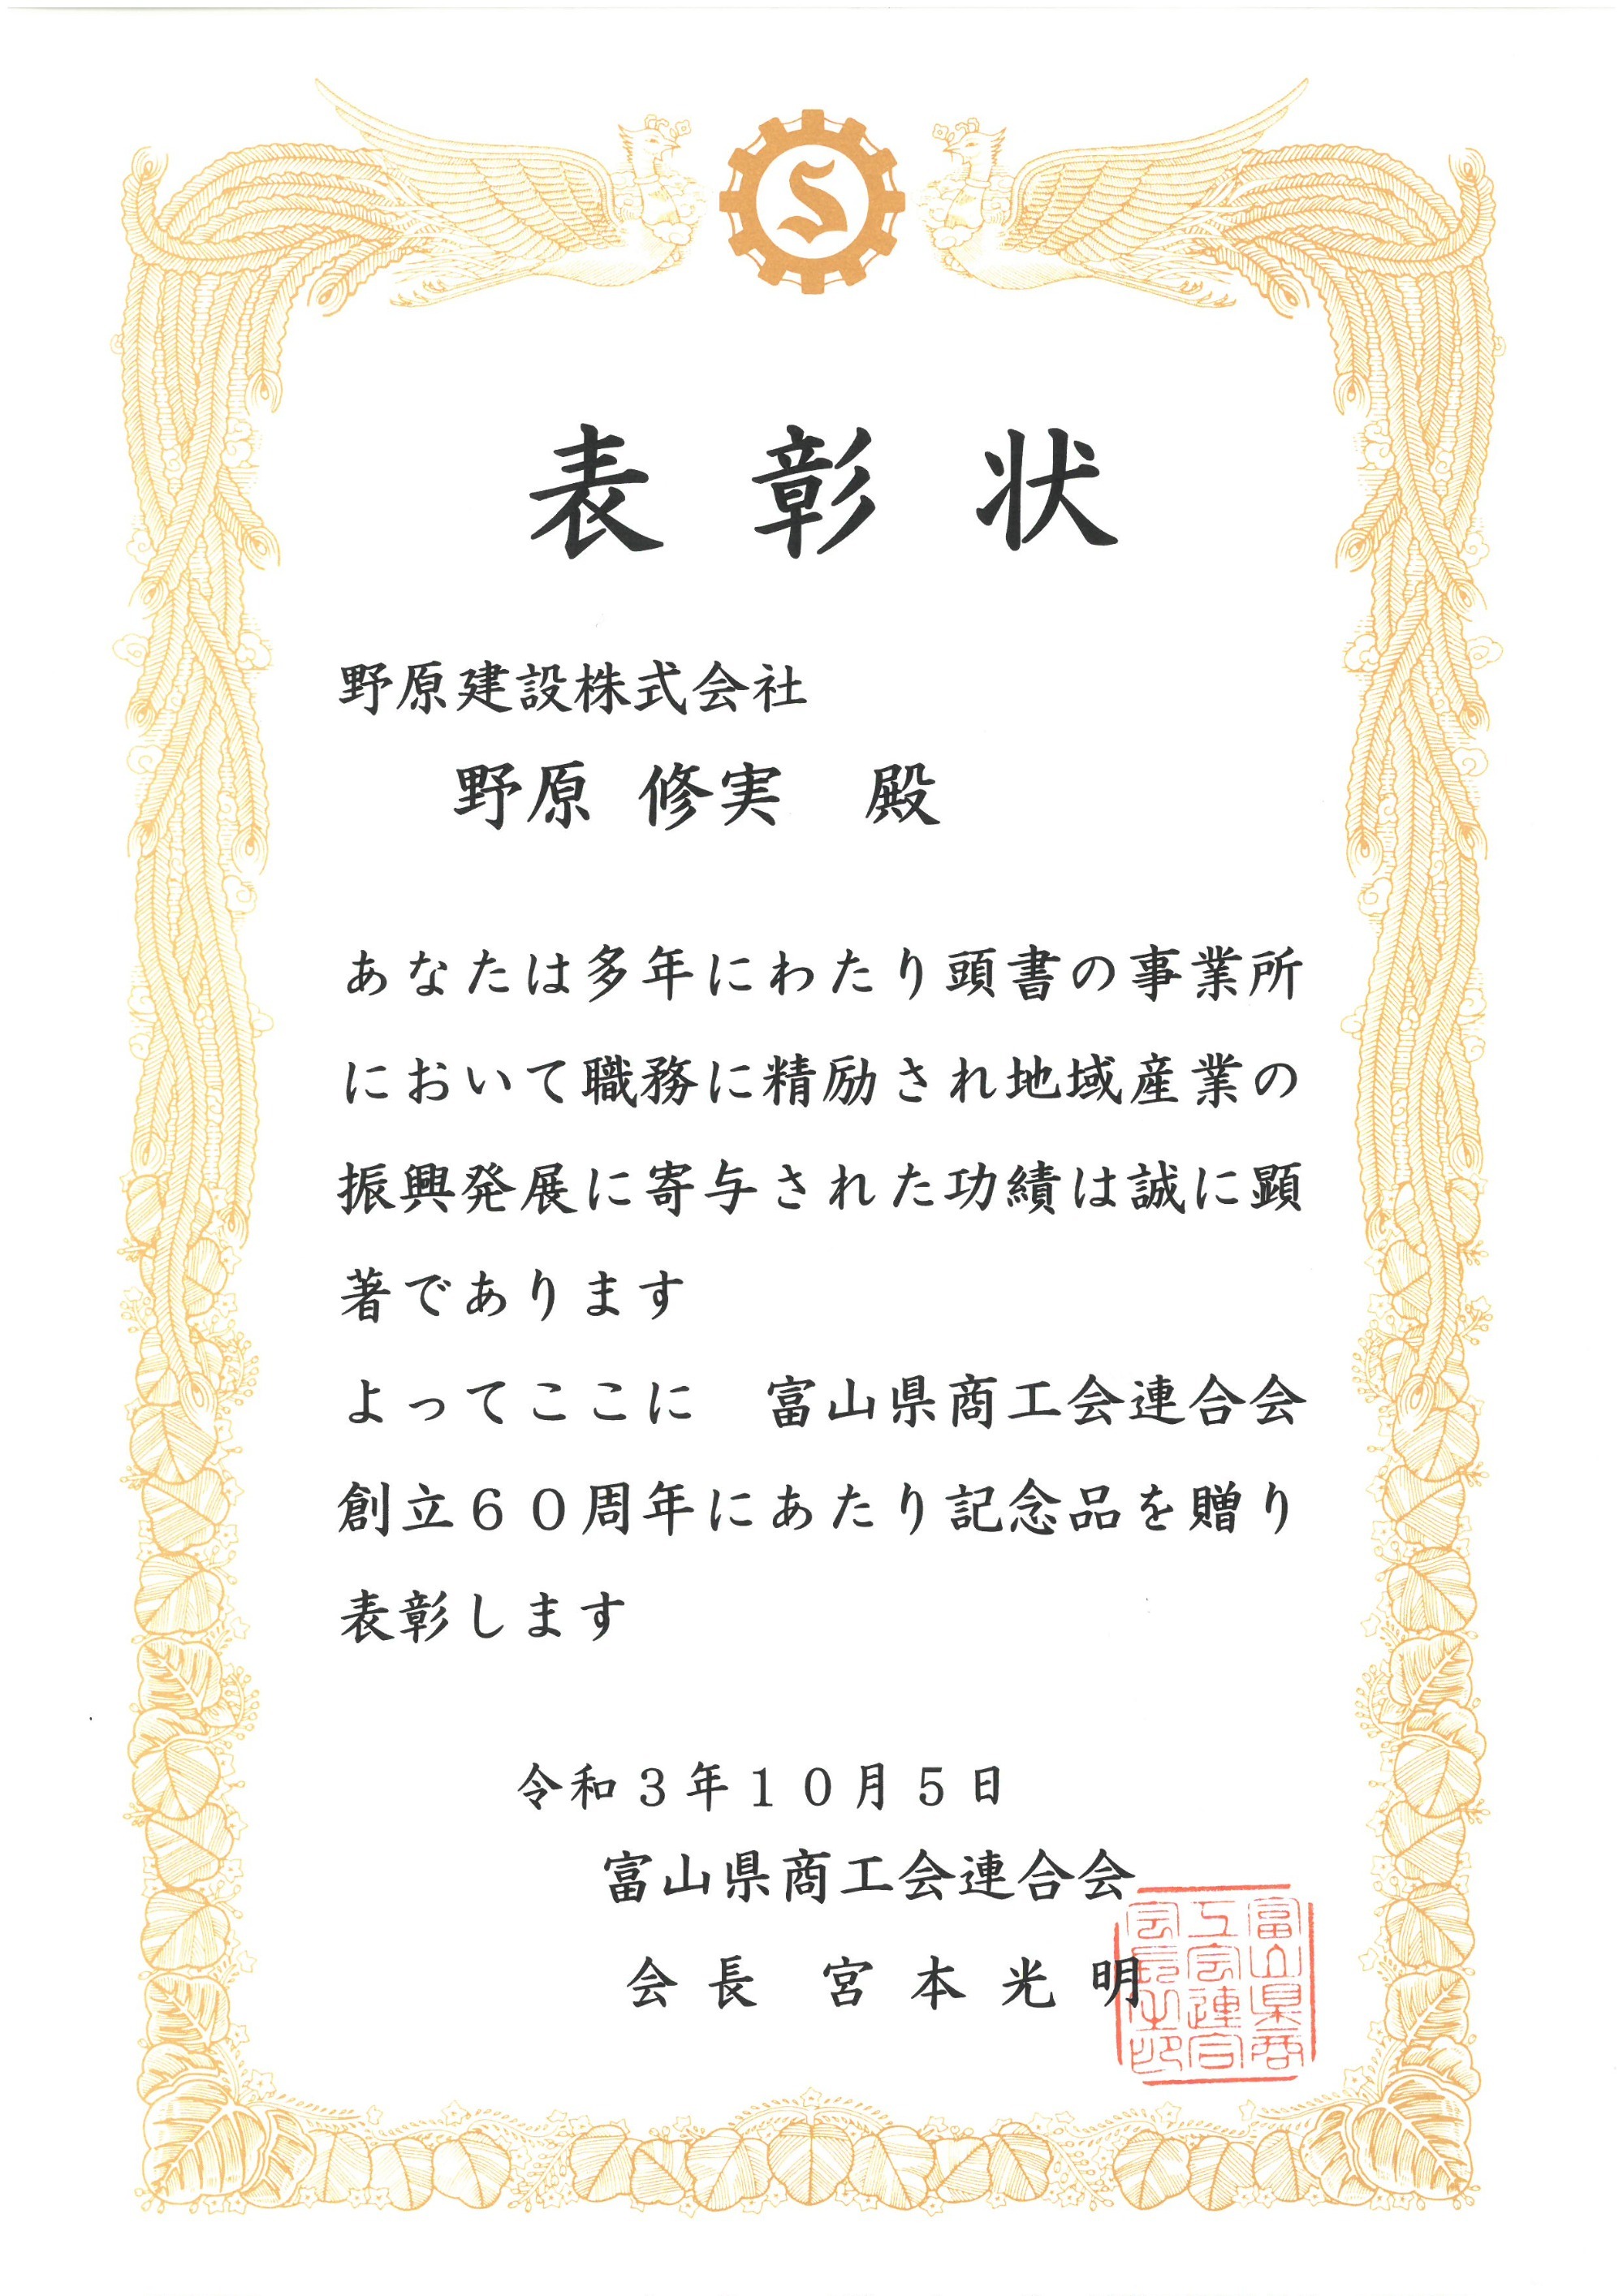 S
表彰状
野原建設株式会社
野原 修実　殿
あなたは多年にわたり頭書の事業所
において職務に精励され地域産業の
振興発展に寄与された功績は誠に顕
著であります
よってここに　富山県商工会連合会
創立６０周年にあたり記念品を贈り
表彰します
令和３年１０月５日
富山県商工会連合会
会長　宮本光明
富山県商
工会連合
会長之印